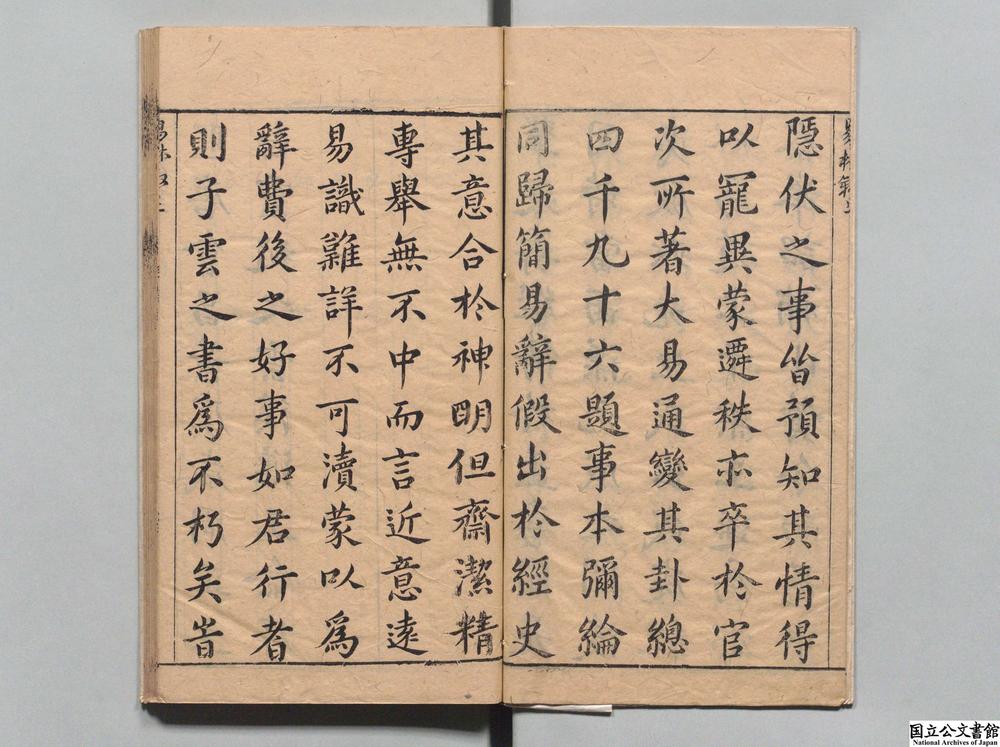 隱伏之事皆預知其情得
以寵異蒙遷秩亦卒於官
次所著大易通變其卦總
四千九十六題事本彌綸
同歸簡易辭假出於經史
其意合於神明但齋潔精
專舉無不中而言近意遠
易識難詳不可瀆蒙以爲
辭費後之好事如君行者
則子雲之書爲不朽矣旹
国立公文書館
National Archives of Japan